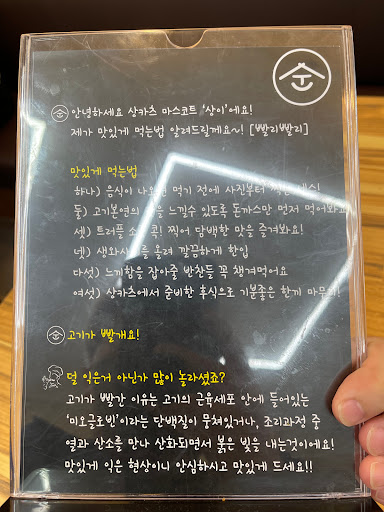 안녕하세요 상카츠 마스코트 '상이'에요!
제가 맛있게 먹는법 알려드릴게요~! [빨리빨리]
맛있게 먹는법
하나) 음식이 나오면 먹기 전에 사진부터
둘) 고기본연의 을 느낄수 있도록 돈까스만 먼저 먹어봐요
셋) 트러플 콕! 찍어 담백한 맛을 즐겨봐요!
넷) 생와사비를 올려 깔끔하게 한입
다섯) 느끼함을 잡아줄 반찬들 꼭 챙겨먹어요
여섯) 상카츠에서 준비한 후식으로 기분좋은 한끼 마무리!
고기가 빨개요!
덜 익은거 아닌가 많이 놀라셨죠?
고기가 빨간 이유는 고기의 근육세포 안에 들어있는
'미오글로빈'이라는 단백질이 뭉쳐있거나, 조리과정 중
열과 산소를 만나 산화되면서 붉은 빛을 내는것이에요!
맛있게 익은 현상이니 안심하시고 맛있게 드세요!!